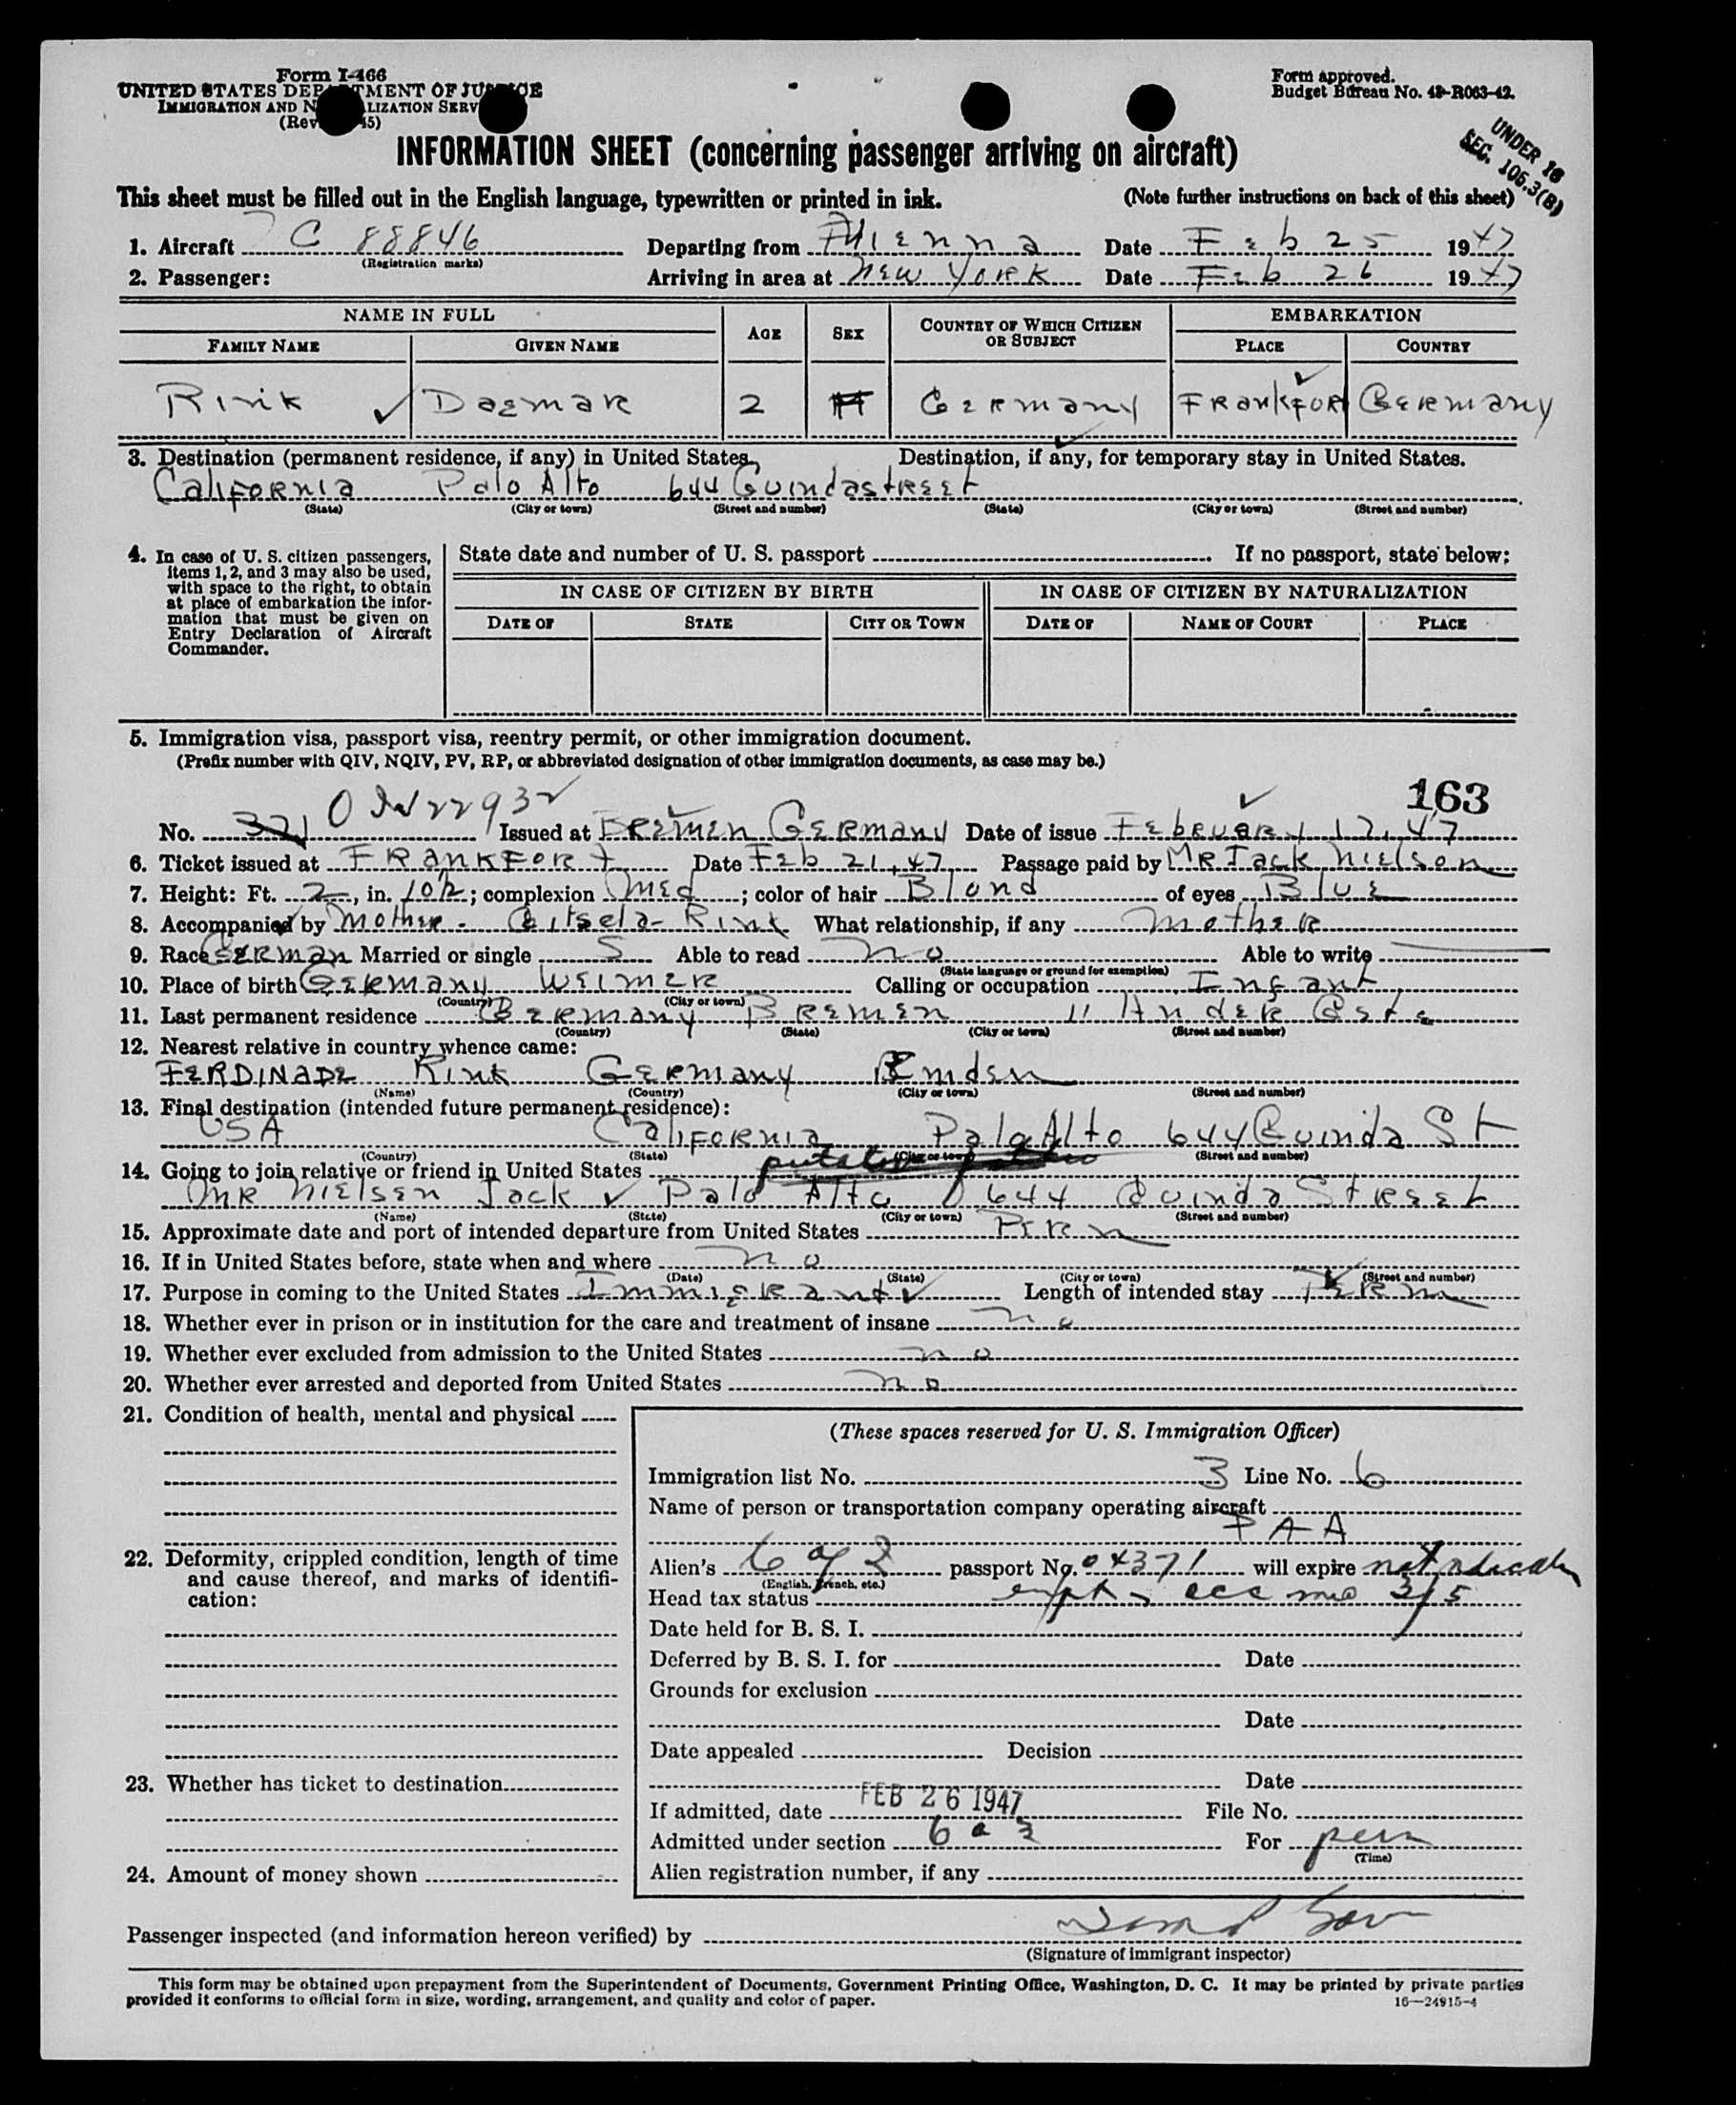 Form I-466
UNITED STATES DEPARTMENT OF JUSTICE
IMMIGRATION AND NATURALIZATION SERV
(Rev. 45)
Form approved.
Budget Bureau No. 43-R063-42.
UNDER 16
SEC. 105.3(B)
INFORMATION SHEET (concerning passenger arriving on aircraft)
This sheet must be filled out in the English language, typewritten or printed in ink. (Note further instructions on back of this sheet)
1. Aircraft C 88846 Departing from Vienna Date Feb 25 1947
(Registration marks)
2. Passenger: Arriving in area at New York Date Feb 26 1947
NAME IN FULL AGE SEX COUNTRY OF WHICH CITIZEN OR SUBJECT EMBARKATION
FAMILY NAME GIVEN NAME PLACE COUNTRY
Rink Dagmar 2 Germany Frankfor Germany
3. Destination (permanent residence, if any) in United States. Destination, if any, for temporary stay in United States.
California Palo Alto 644 Guindastreet
(State) (City or town) (Street and number) (State) (City or town) (Street and number)
4. In case of U. S. citizen passengers, items 1, 2, and 3 may also be used, with space to the right, to obtain at place of embarkation the information that must be given on Entry Declaration of Aircraft Commander.
State date and number of U. S. passport If no passport, state below:
IN CASE OF CITIZEN BY BIRTH IN CASE OF CITIZEN BY NATURALIZATION
DATE OF STATE CITY OR TOWN DATE OF NAME OF COURT PLACE
5. Immigration visa, passport visa, reentry permit, or other immigration document.
(Prefix number with QIV, NQIV, PV, RP, or abbreviated designation of other immigration documents, as case may be.)
163
No. 321 Issued at Bremen Germany Date of issue February 17, 47
6. Ticket issued at Frankfort Date Feb 21, 47 Passage paid by Mr Jack Nielson
7. Height: Ft. 2, in. 10½; complexion Med; color of hair Blond of eyes Blue
8. Accompanied by Mother - Gitsela Rink What relationship, if any Mother
9. Race German Married or single S Able to read no Able to write
(State language or ground for exemption)
10. Place of birth Germany Weimer Calling or occupation Infant
(Country) (City or town)
11. Last permanent residence Germany Bremen 11 An der Geste
(Country) (State) (City or town) (Street and number)
12. Nearest relative in country whence came:
FERDINADE Rink Germany Emden
(Name) (Country) (City or town) (Street and number)
13. Final destination (intended future permanent residence):
USA California Palo Alto 644 Guinda St
(Country) (State) (City or town) (Street and number)
14. Going to join relative or friend in United States
Mr Nielsen Jack Palo Alto 644 Guinda Street
(Name) (State) (City or town) (Street and number)
15. Approximate date and port of intended departure from United States Perm
16. If in United States before, state when and where no
(Date) (State) (City or town) (Street and number)
17. Purpose in coming to the United States Immigrant Length of intended stay Perm
18. Whether ever in prison or in institution for the care and treatment of insane no
19. Whether ever excluded from admission to the United States no
20. Whether ever arrested and deported from United States no
21. Condition of health, mental and physical
22. Deformity, crippled condition, length of time and cause thereof, and marks of identification:
23. Whether has ticket to destination
24. Amount of money shown
(These spaces reserved for U. S. Immigration Officer)
Immigration list No. 3 Line No. 6
Name of person or transportation company operating aircraft
PAA
Alien's passport No. 04371 will expire
(English, French, etc.)
Head tax status
Date held for B. S. I.
Deferred by B. S. I. for Date
Grounds for exclusion
Date
Date appealed Decision
Date
If admitted, date FEB 26 1947 File No.
Admitted under section 6 a 3 For perm
(Time)
Alien registration number, if any
Passenger inspected (and information hereon verified) by
(Signature of immigrant inspector)
This form may be obtained upon prepayment from the Superintendent of Documents, Government Printing Office, Washington, D. C. It may be printed by private parties
provided it conforms to official form in size, wording, arrangement, and quality and color of paper. 16—24915-4